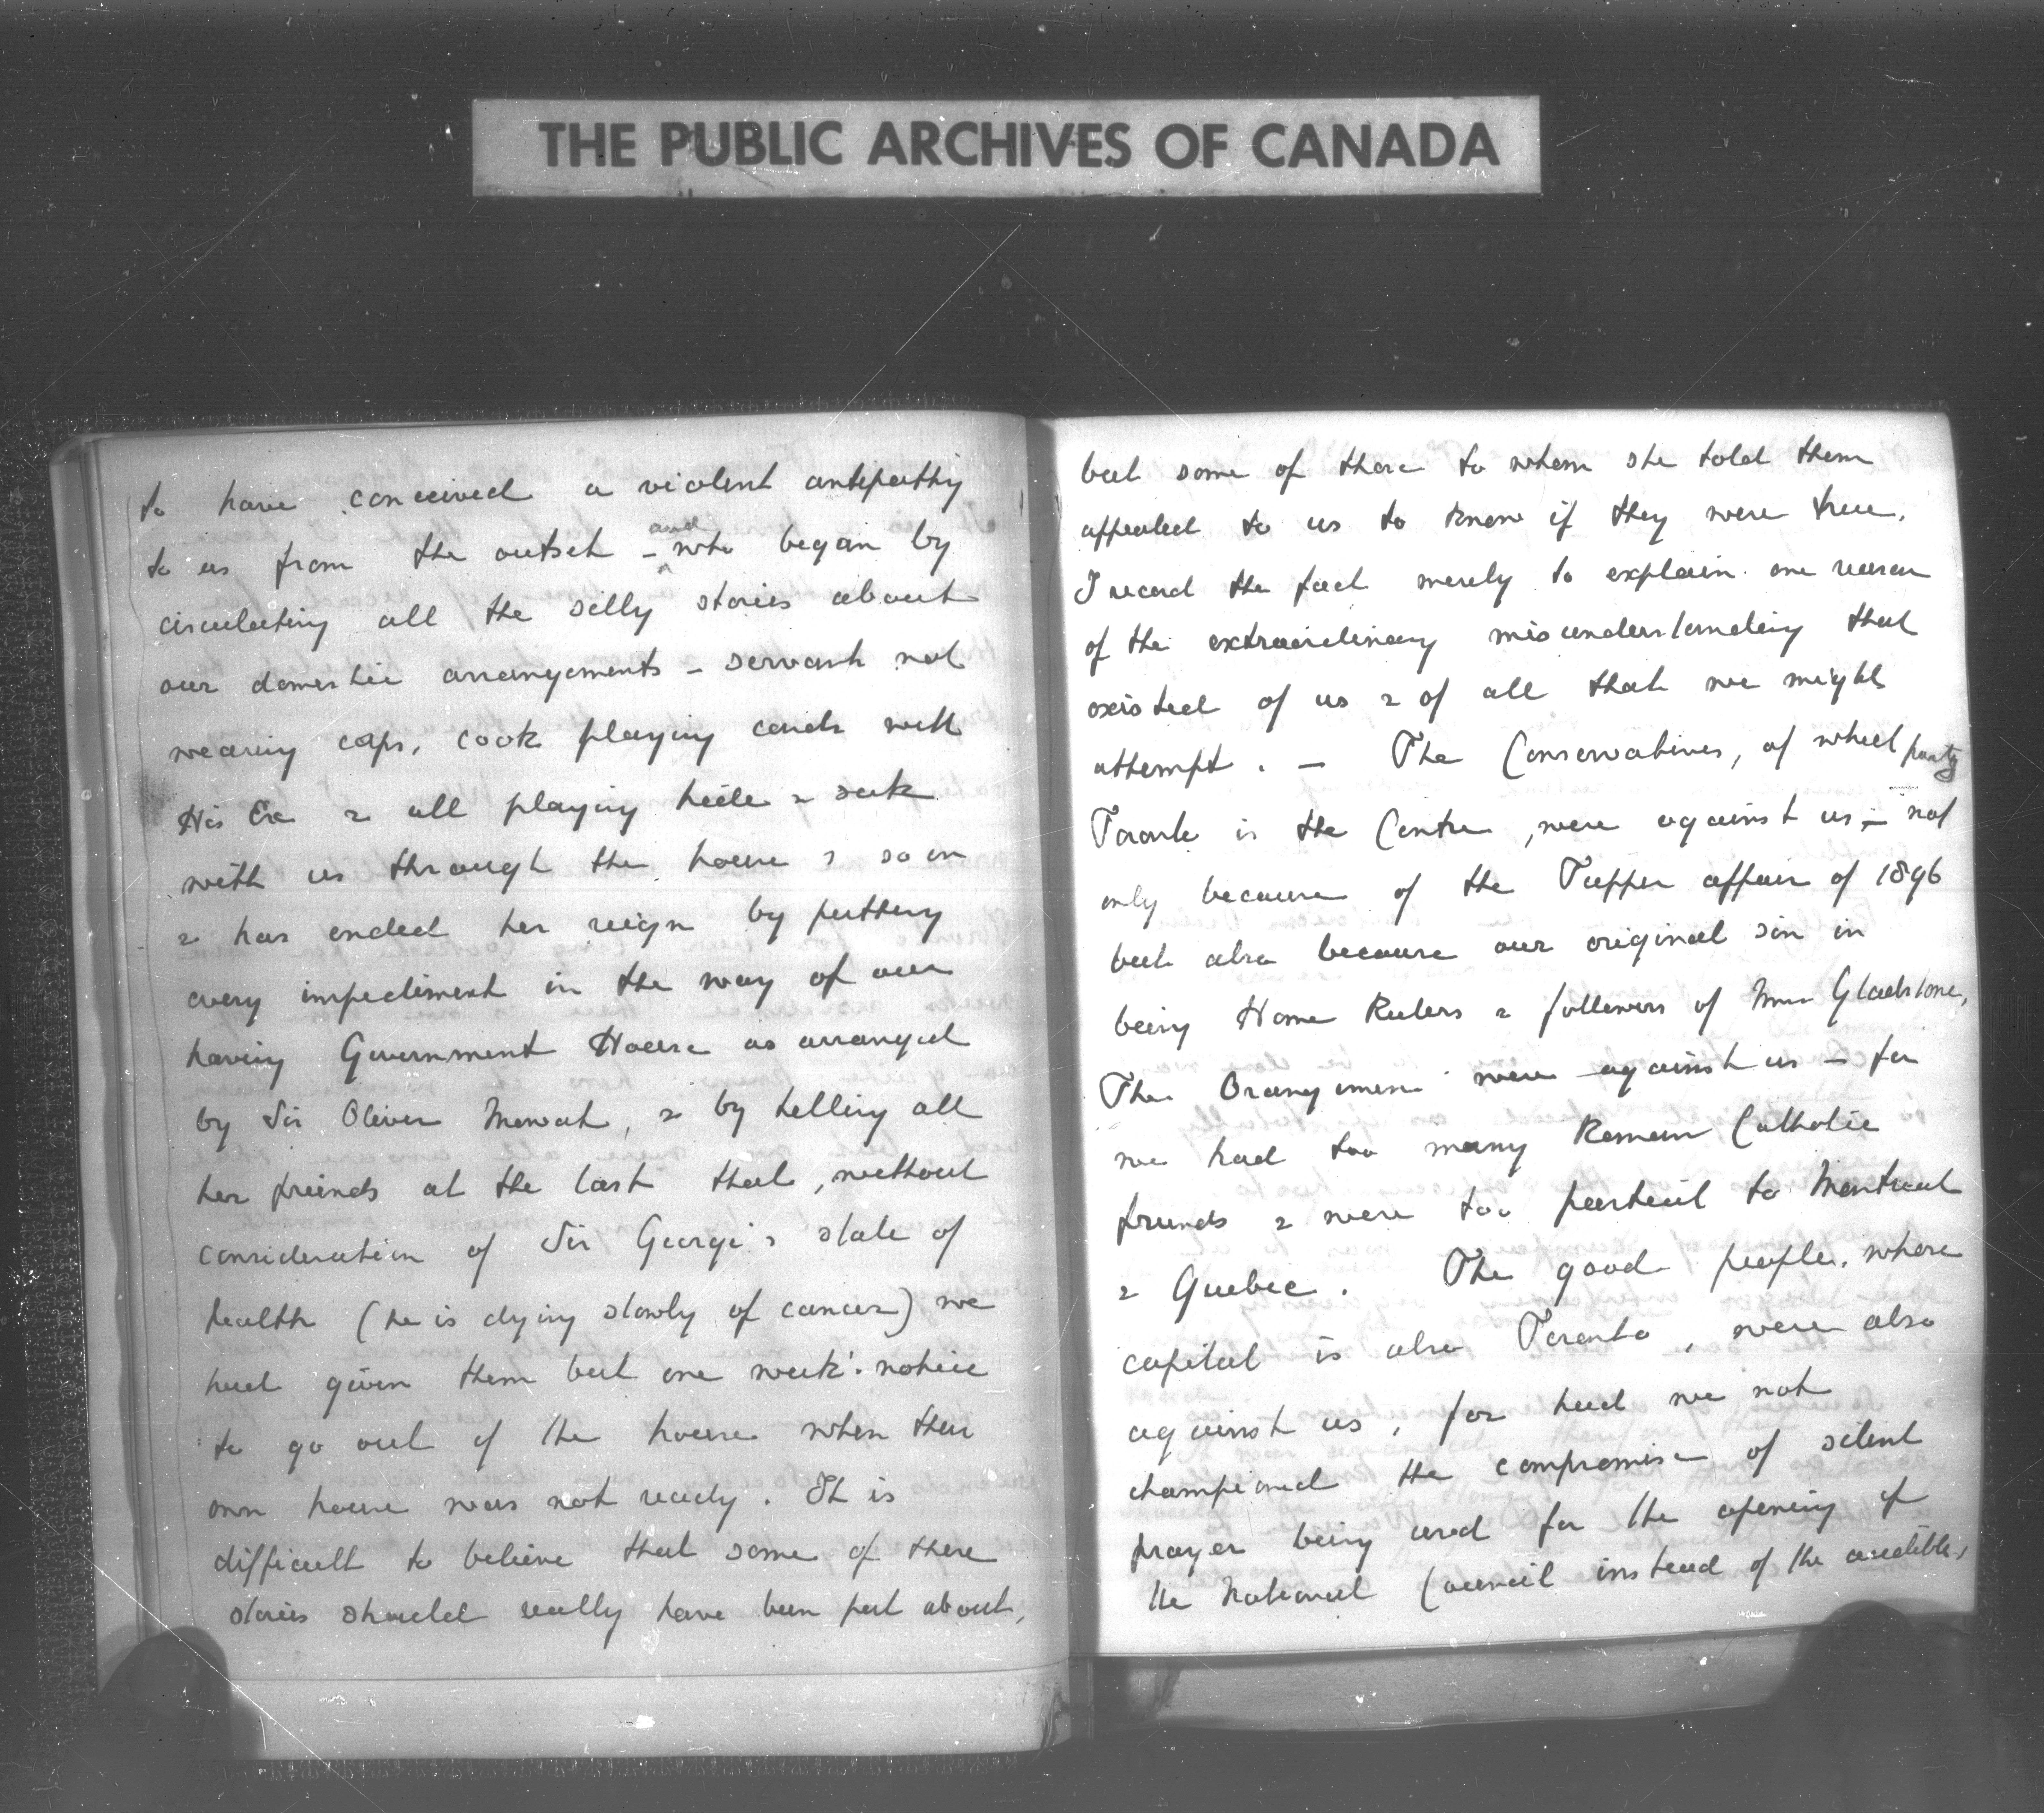 THE PUBLIC ARCHIVES OF CANADA
to have conceived a violent antipathy
to us from the outset – and who began by
circulating all the silly stories about
our domestic arrangements – servants not
wearing caps, cook playing cards with
His Ex & all playing hide & seek
with us through the house & so on
& has ended her reign by putting
every impediment in the way of our
having Government House as arranged
by Sir Oliver Mowat, & by telling all
her friends at the last that, without
consideration of Sir George's state of
health (he is dying slowly of cancer) we
had given them but one week's notice
to go out of the house when their
own house was not ready. It is
difficult to believe that some of these
stories should really have been put about,
but some of those to whom she told them
appealed to us to know if they were true.
I record the fact merely to explain one reason
of the extraordinary misunderstanding that
existed of us & of all that we might
attempt. – The Conservatives, of which party
Toronto is the Centre, were against us – not
only because of the Tupper affair of 1896
but also because our original sin in
being Home Rulers & followers of Mr Gladstone,
The Orangemen were against us – for
we had too many Roman Catholic
friends & were too partial to Montreal
& Quebec. The good people, whose
capital is also Toronto, were also
against us, for had we not
championed the compromise of silent
prayer being used for the opening of
the National Council instead of the audible,